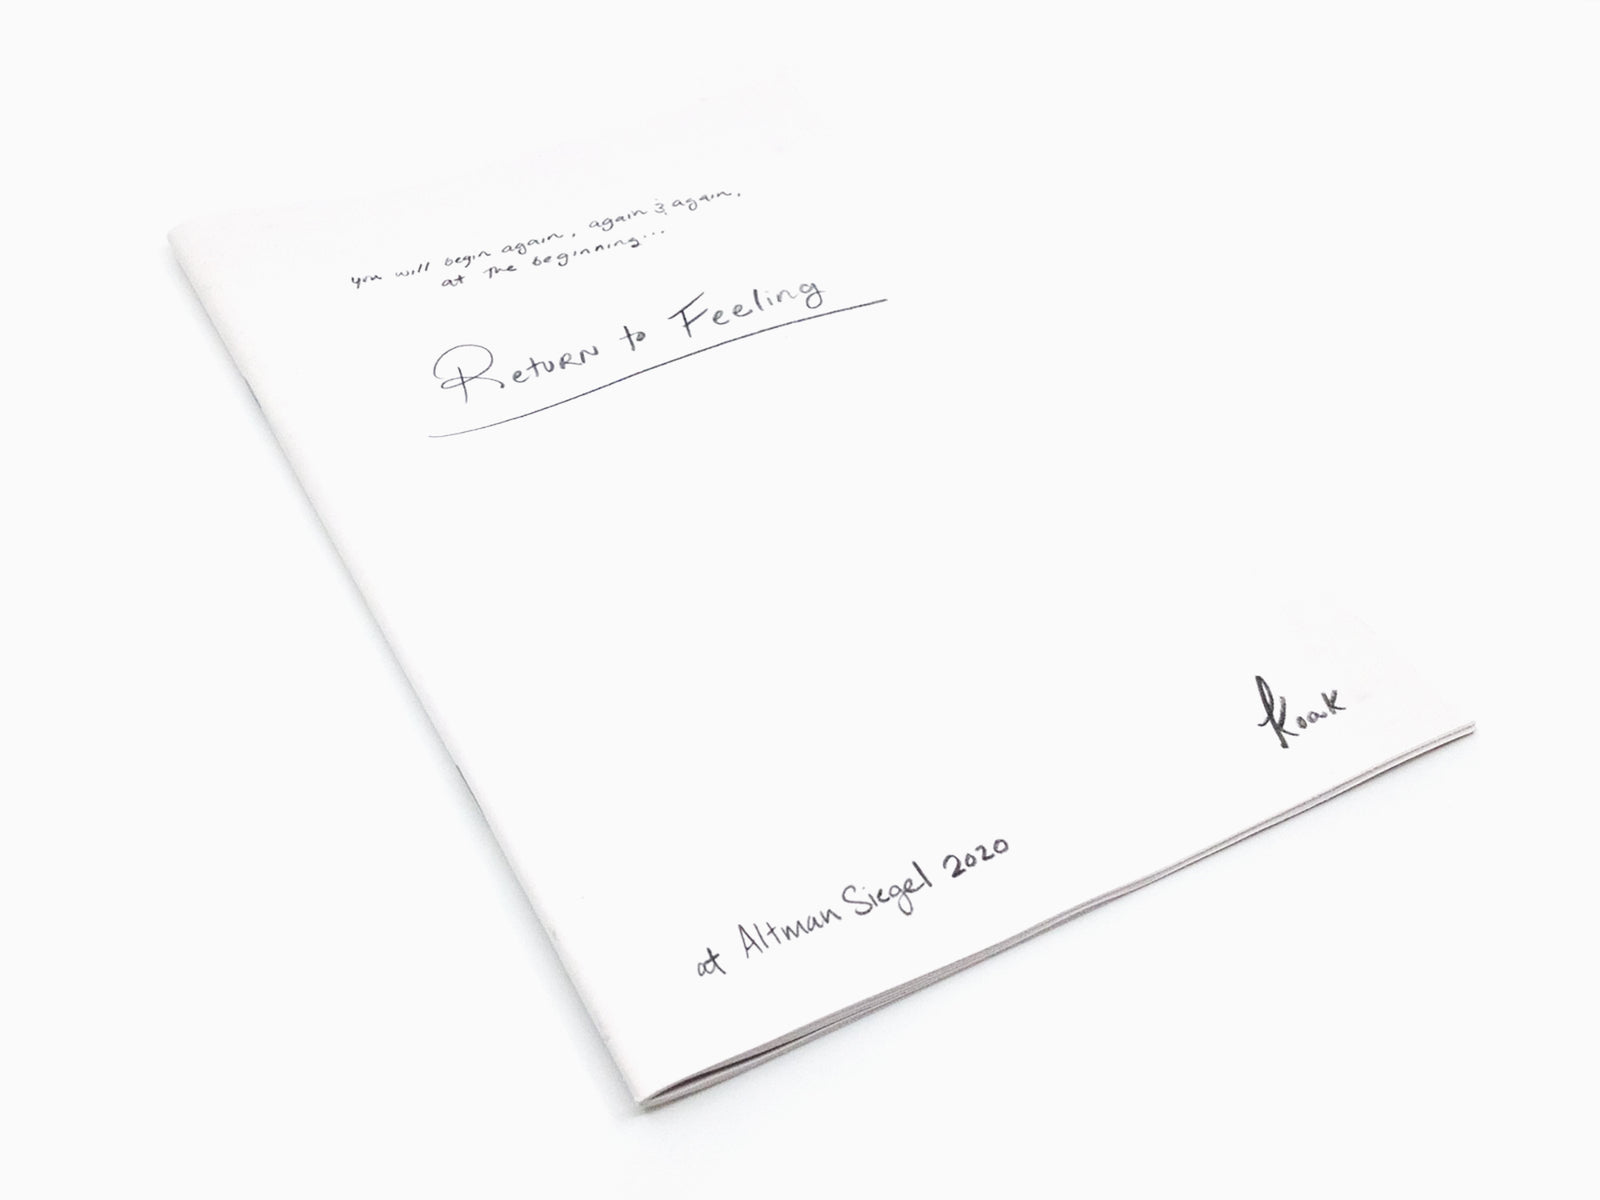 you will begin again, again & again,
at the beginning...
Return to Feeling
Koak
at Altman Siegel 2020